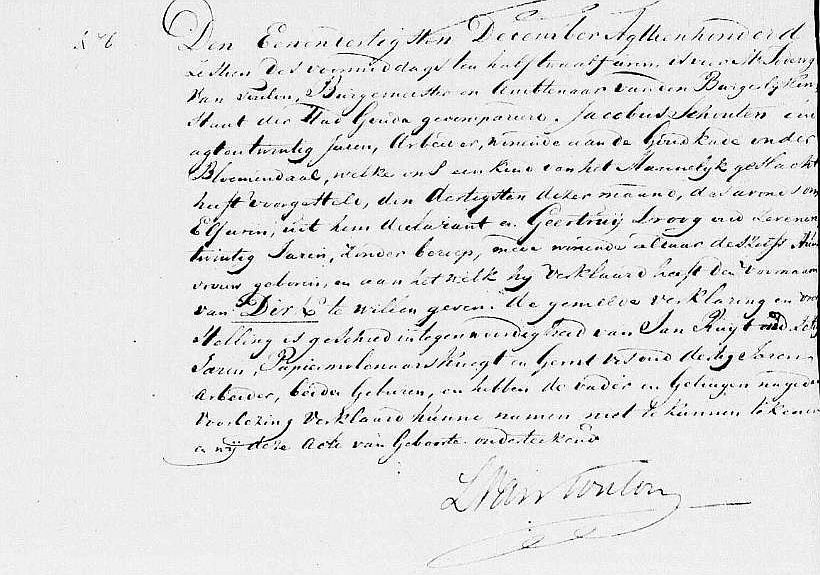 Den Eenendertigsten December Agttienhonderd
Zestien des voormiddags ten half twaalf uren, is voor
Van Toulon, Burgemeester en Ambtenaar van den Burgerlyken
Staat der Stad Gouda gecompareerd Jacobus Schouten oud
agtentwintig Jaren, Arbeider, wonende aan de Goudkade onder
Bloemendaal, welke ons een kind van het Mannelyk geslacht
heeft voorgesteld, den dertigsten dezer maand, des avonds om
Elf uren, uit hem declarant en Geertruij Droog oud Zevenen
twintig Jaren, zonder beroep, mede wonende aldaar deszelfs Huis
vrouw geboren, en aan het welk hy verklaard heeft den voornaam
van Dirk te willen geven. De gemelde verklaring en voor
stelling is geschied in tegenwoordigheid van Jan Kuyt oud
Jaren, Papiermolenaarsknegt en Gerrit Vis oud dertig Jaren
Arbeider, beide Geburen, en hebben de vader en Getuigen na gedane
voorlezing verklaard hunne namen niet te kunnen tekenen
en wij deze Acte van Geboorte onderteekend
L Van Toulon